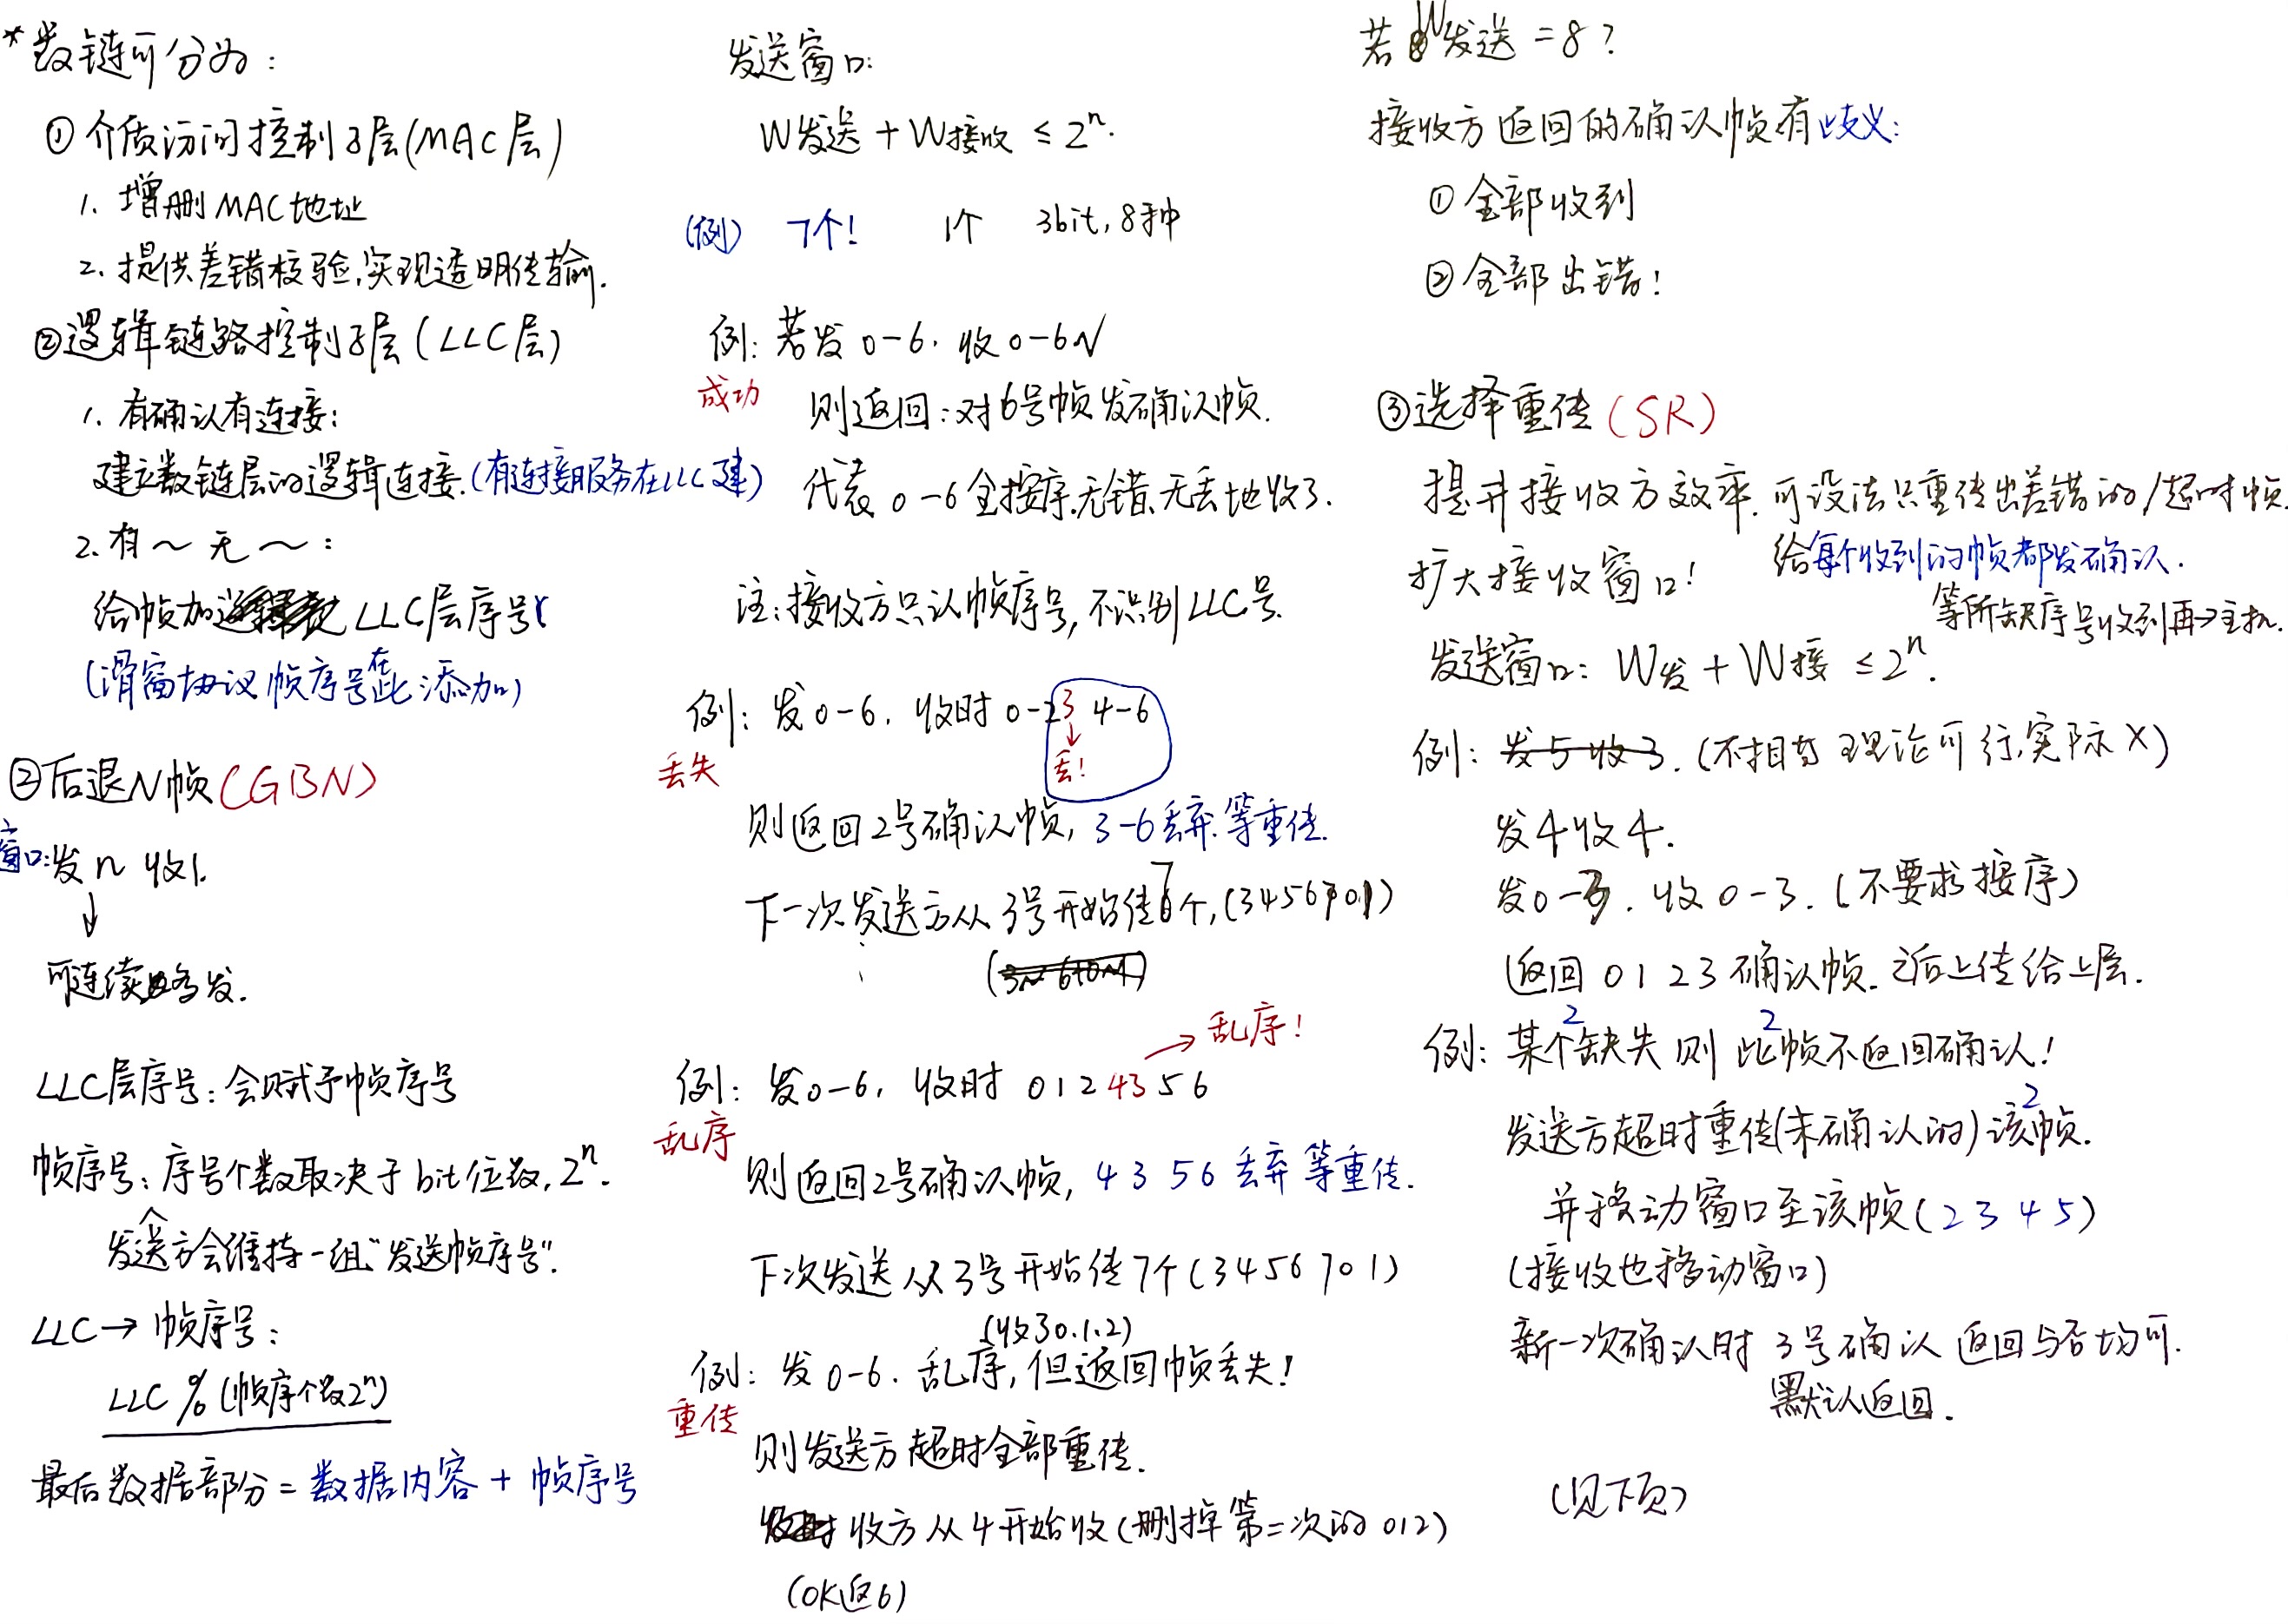 *数链可分为:
① 介质访问控制子层(MAC层)
1. 增删MAC地址
2. 提供差错校验,实现透明传输.
②逻辑链路控制子层(LLC层)
1. 有确认有连接:
建立数链层的逻辑连接.(有连接服务在LLC建)
2. 有～无～:
给帧加 LLC层序号
(滑窗协议帧序号在此添加)
②后退N帧(GBN)
窗口:发n 收1.
↓
可连续多发.
LLC层序号:会赋予帧序号
帧序号:序号个数取决于bit位数,2ⁿ.
发送方会维持一组"发送帧序号".
LLC→帧序号:
LLC % (帧序个数2ⁿ)
最后数据部分=数据内容+帧序号
发送窗口:
W发送+W接收≤2ⁿ.
(例) 7个! 1个 3bit,8种
例:若发0-6,收0-6√
成功 则返回:对6号帧发确认帧.
代表0-6全按序.无错.无丢地收了.
注:接收方只认帧序号,不识别LLC号.
例:发0-6,收时0-23 4-6
丢失 ↓丢!
则返回2号确认帧,3-6丢弃.等重传.
下一次发送方从3号开始传7个,(3456701)
→乱序!
例:发0-6,收时 0124356
乱序
则返回2号确认帧,4 3 5 6丢弃 等重传.
下次发送从3号开始传7个(3456701)
(收30.1.2)
例:发0-6.乱序,但返回帧丢失!
重传
则发送方超时全部重传.
收方从4开始收(删掉第二次的012)
(OK返6)
若W发送=8?
接收方返回的确认帧有歧义:
①全部收到
②全部出错!
③选择重传(SR)
提升接收方效率.可设法只重传出差错的/超时帧.
扩大接收窗口! 给每个收到的帧都发确认.
等所缺序号收到再→主机.
发送窗口:W发+W接≤2ⁿ.
例:发5收3.(不相等 理论可行,实际×)
发4收4.
发0-3.收0-3.(不要求按序)
返回0123确认帧.之后上传给上层.
例:某个2缺失则此2帧不返回确认!
发送方超时重传(未确认的)该2帧.
并移动窗口至该帧(2345)
(接收也移动窗口)
新一次确认时 3号确认返回与否均可.
默认返回.
(见下页)